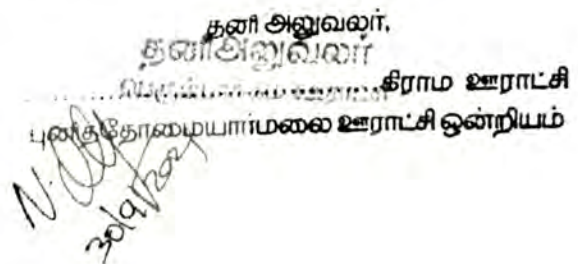 தனி அலுவலர்,
தனிஅலுவலர்
கிராம ஊராட்சி
புனிததோமையார்மலை ஊராட்சி ஒன்றியம்
30/9/2021